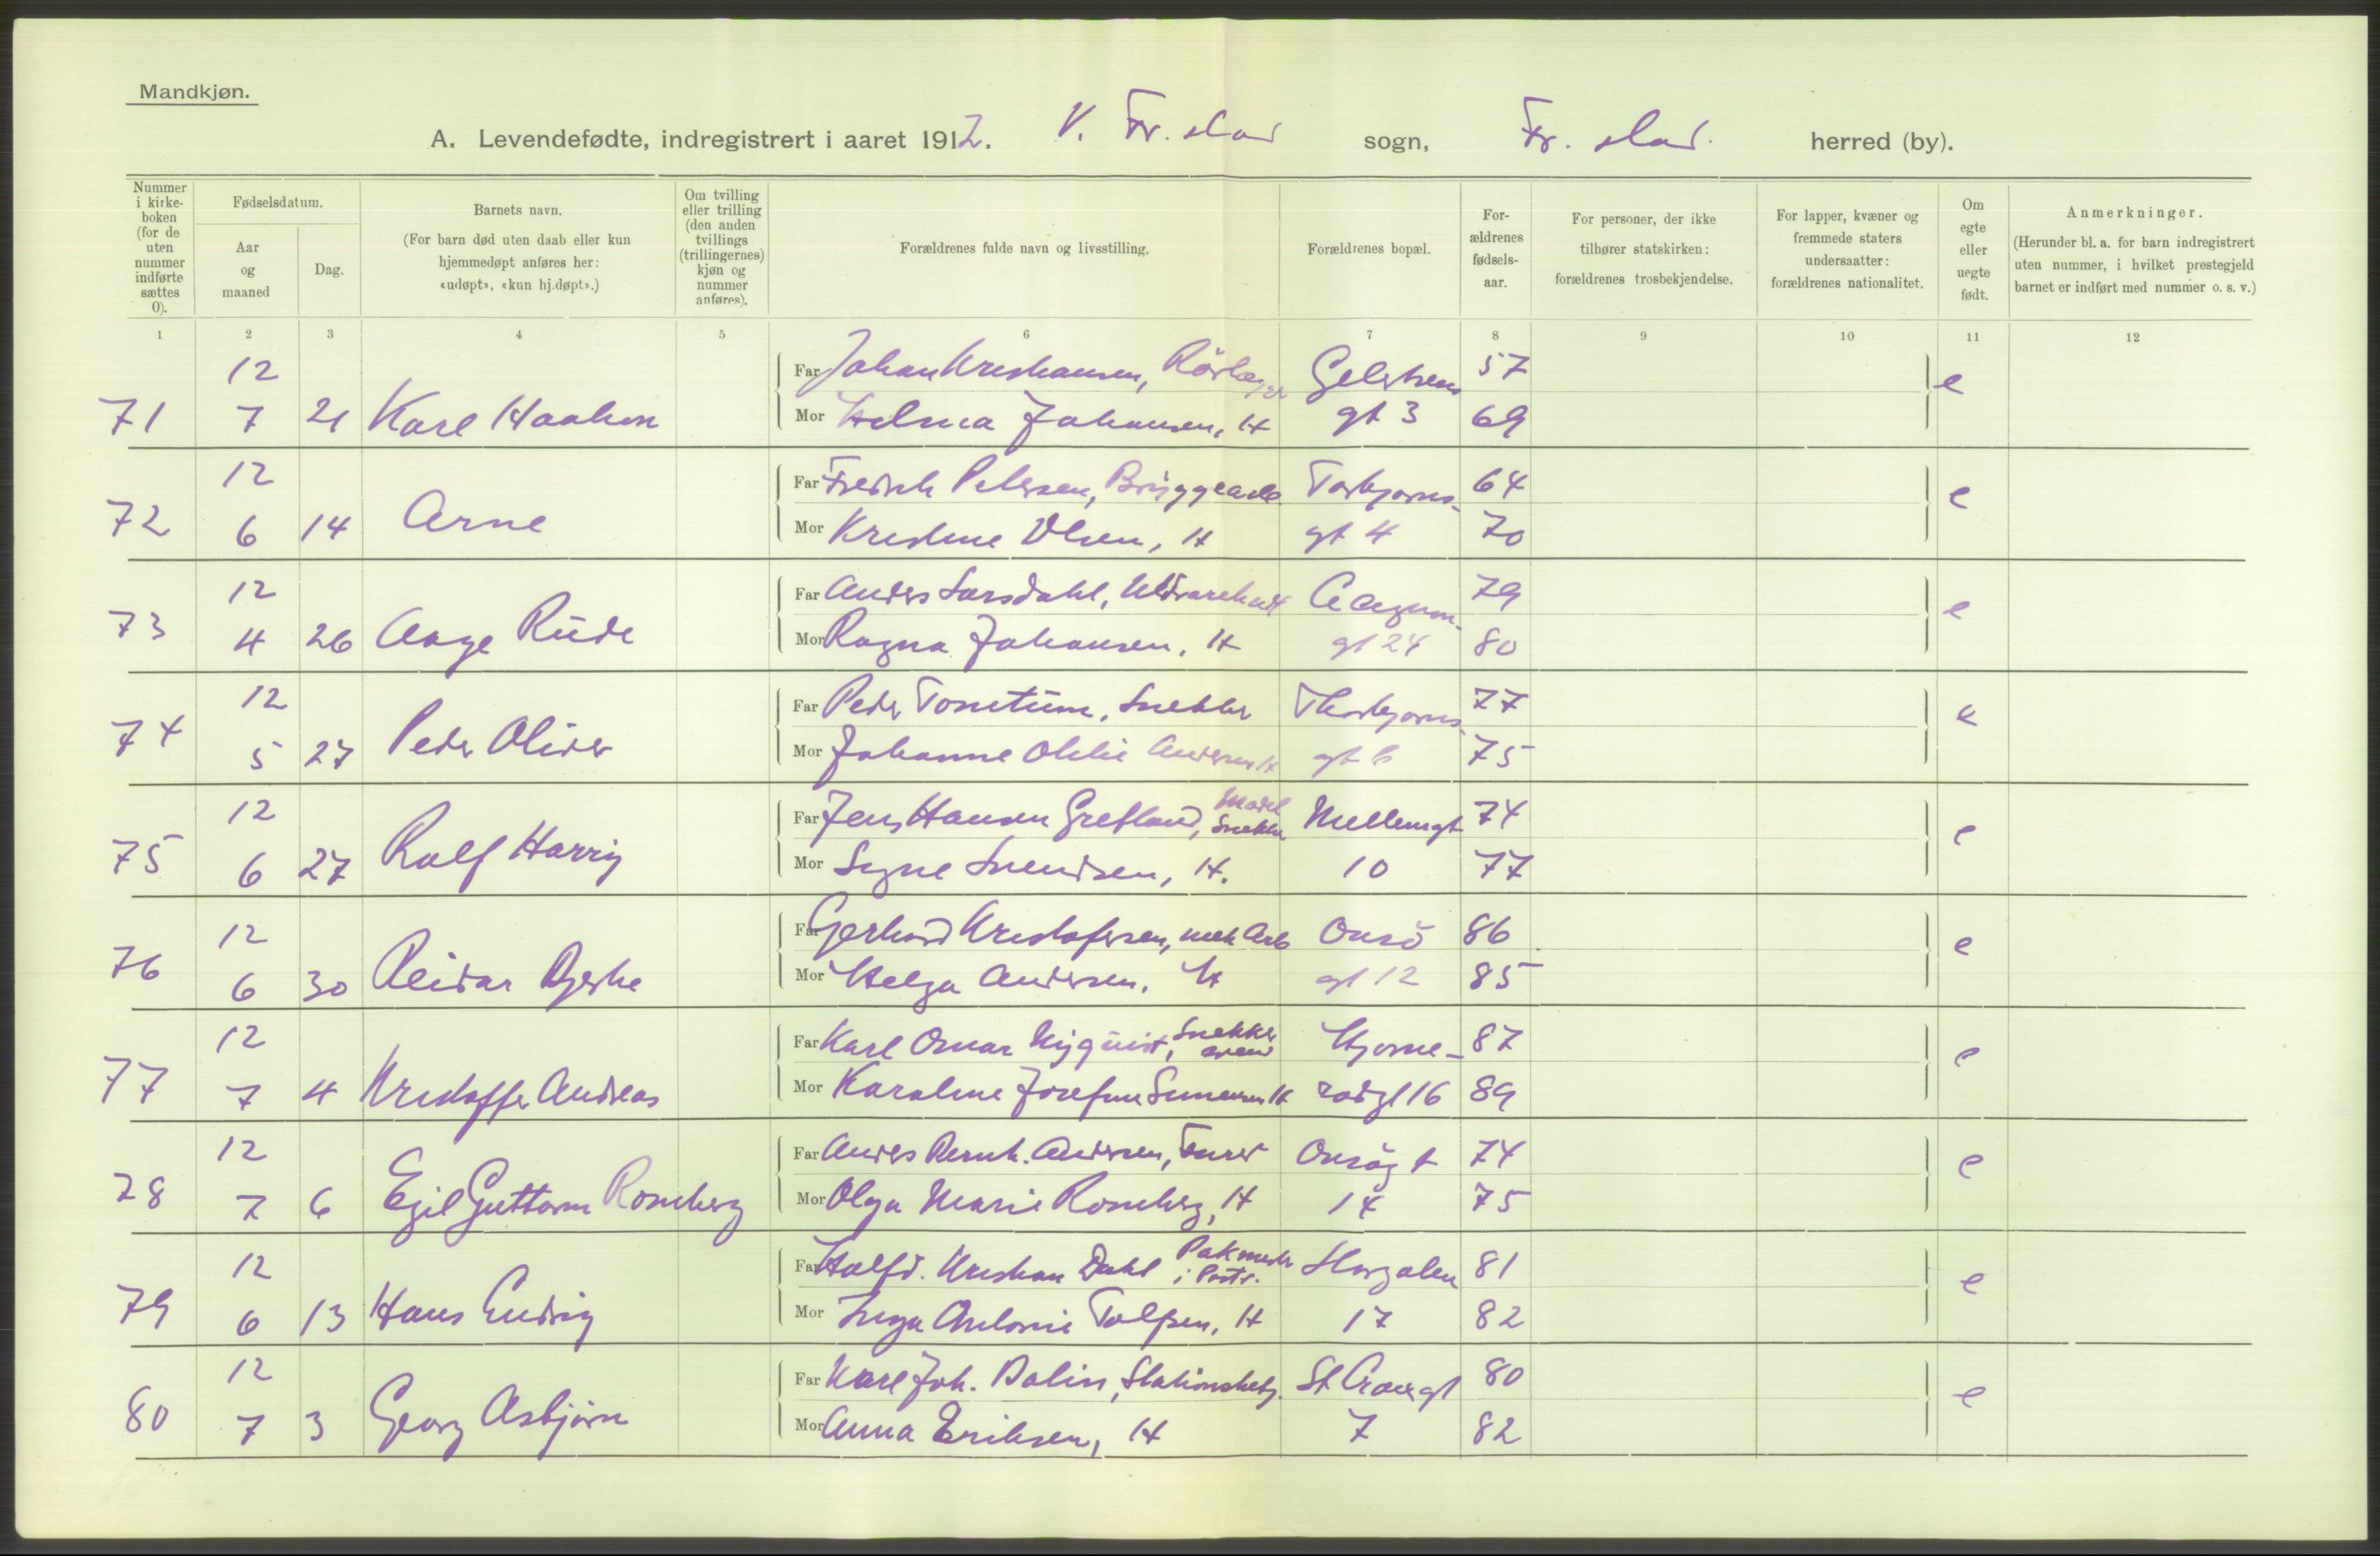 Mandkjøn.
A. Levendefødte, indregistrert i aaret 1912. V. Fr.stad sogn, Fr.stad. herred (by).
Nummer i kirke-boken (for de uten nummer indførte sættes 0).
Fødselsdatum.
Aar og maaned
Dag.
Barnets navn.
(For barn død uten daab eller kun hjemmedøpt anføres her: «udøpt», «kun hj.døpt».)
Om tvilling eller trilling (den anden tvillings (trillingernes) kjøn og nummer anføres).
Forældrenes fulde navn og livsstilling.
Forældrenes bopæl.
For-ældrenes fødsels-aar.
For personer, der ikke tilhører statskirken: forældrenes trosbekjendelse.
For lapper, kvæner og fremmede staters undersaatter: forældrenes nationalitet.
Om egte eller uegte født.
Anmerkninger.
(Herunder bl. a. for barn indregistrert uten nummer, i hvilket prestegjeld barnet er indført med nummer o. s. v.)
1 2 3 4 5 6 7 8 9 10 11 12
12 Far Johan Kristiansen, Rörlægger 57 e
71 7 21 Karl Haakon Mor Helma Johansen, H gt 3 69
12 Far Fredrik Petersen, Bryggearb. Torbjorns- 64 e
72 6 14 Arne Mor Kristine Olsen, H gt 4 70
12 Far Anders Larsdahl, 79 e
73 4 26 Aage Rude Mor Ragna Johansen, H gt 24 80
12 Far Peder Tomtum, Snekker Thorbjorns- 77 e
74 5 27 Peder Oliver Mor Johanne Otilie Andersen H gt 6 75
12 Far Jens Hansen Grefland, Model Snekker Mellemgt 74 e
75 6 27 Ralf Harry Mor Signe Svendsen, H. 10 77
12 Far Gerhard Kristofersen, mek Arb Onsö 86 e
76 6 30 Reidar Bjerke Mor Helga Andersen, H gt 12 85
12 Far Karl Osmar Nyquist, Snekker svend Hjorne- 87 e
77 7 4 Kristoffer Andreas Mor Karoline Josefine Simensen H radgt 16 89
12 Far Anders Bernh. Andersen, Murer Onsögt 74 e
78 7 6 Egil Guttorm Romberg Mor Olga Marie Romberg, H 14 75
12 Far Halfd. Kristian Dahl Pakmester i Postv. Storgaten 81 e
79 6 13 Hans Ludvig Mor Inga Antonie Tolfsen, H 17 82
12 Far Karl Joh. Dalin, Stationsbetj. St Croixgt 80 e
80 7 3 Georg Asbjörn Mor Anna Eriksen, H 7 82